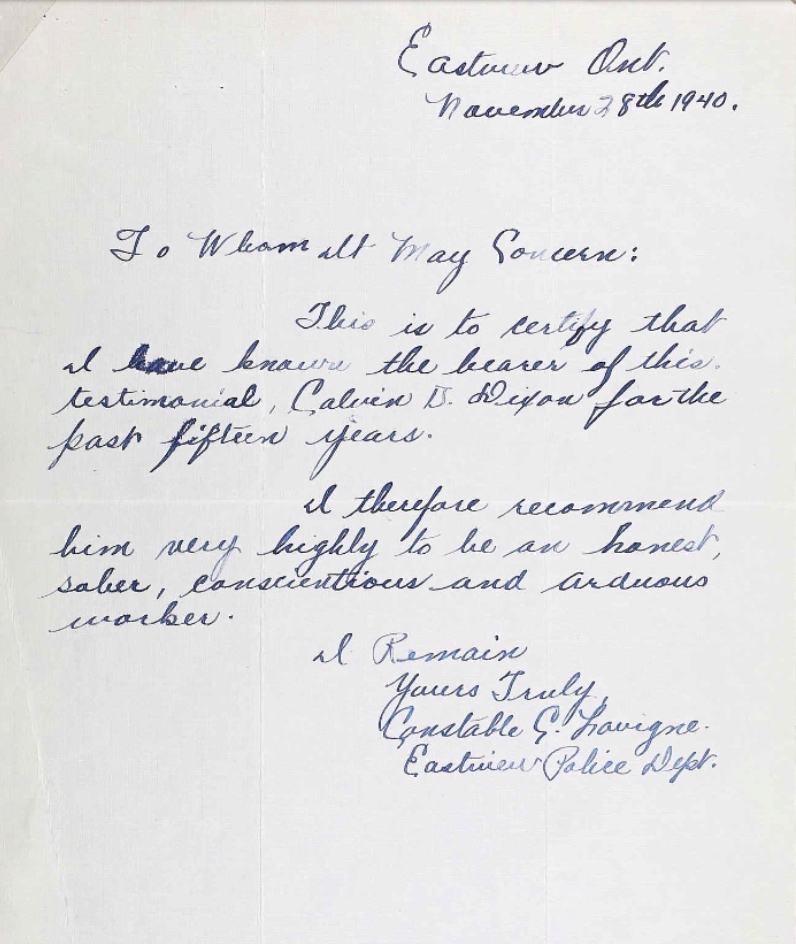 Eastview Ont.
November 28th 1940.
To Whom It May Concern:
This is to certify that
I have known the bearer of this
testimonial, Calvin D. Dixon for the
past fifteen years.
I therefore recommend
him very highly to be an honest,
sober, conscientious and arduous
worker.
I Remain
Yours Truly,
Constable G. Lavigne.
Eastview Police Dept.